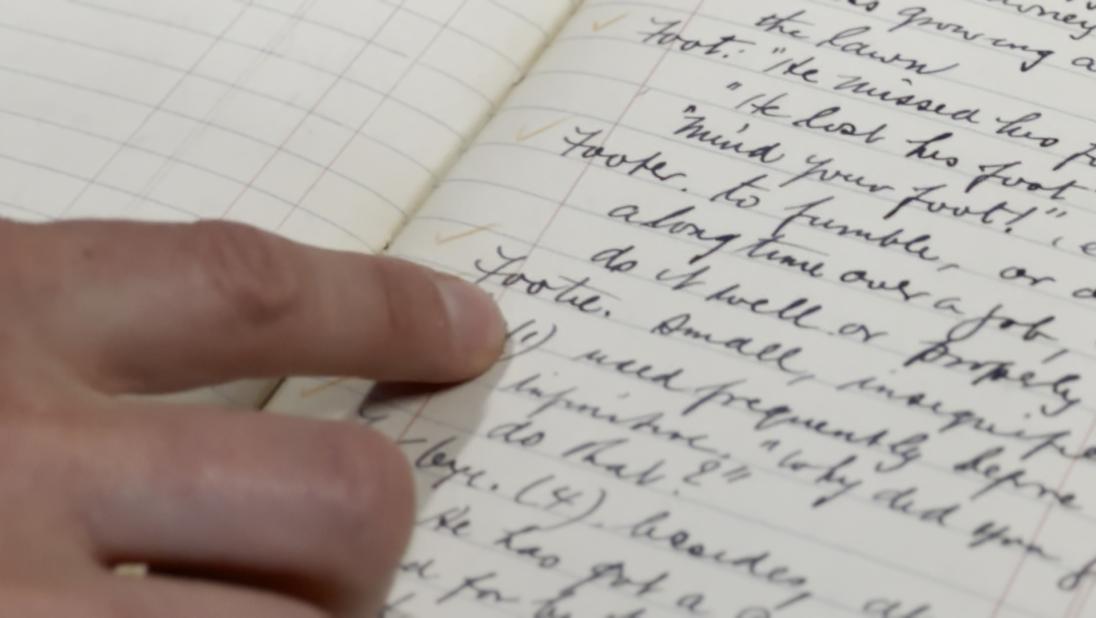 growing a
the lawn
Foot: "He missed his f
"He lost his foot
"mind your foot!"
Footer. to fumble, or
a long time over a job,
do it well or properly
Footie. Small,
(1) used frequently before
infinitive. "why did you
do that?"
(4). besides,
He has got a